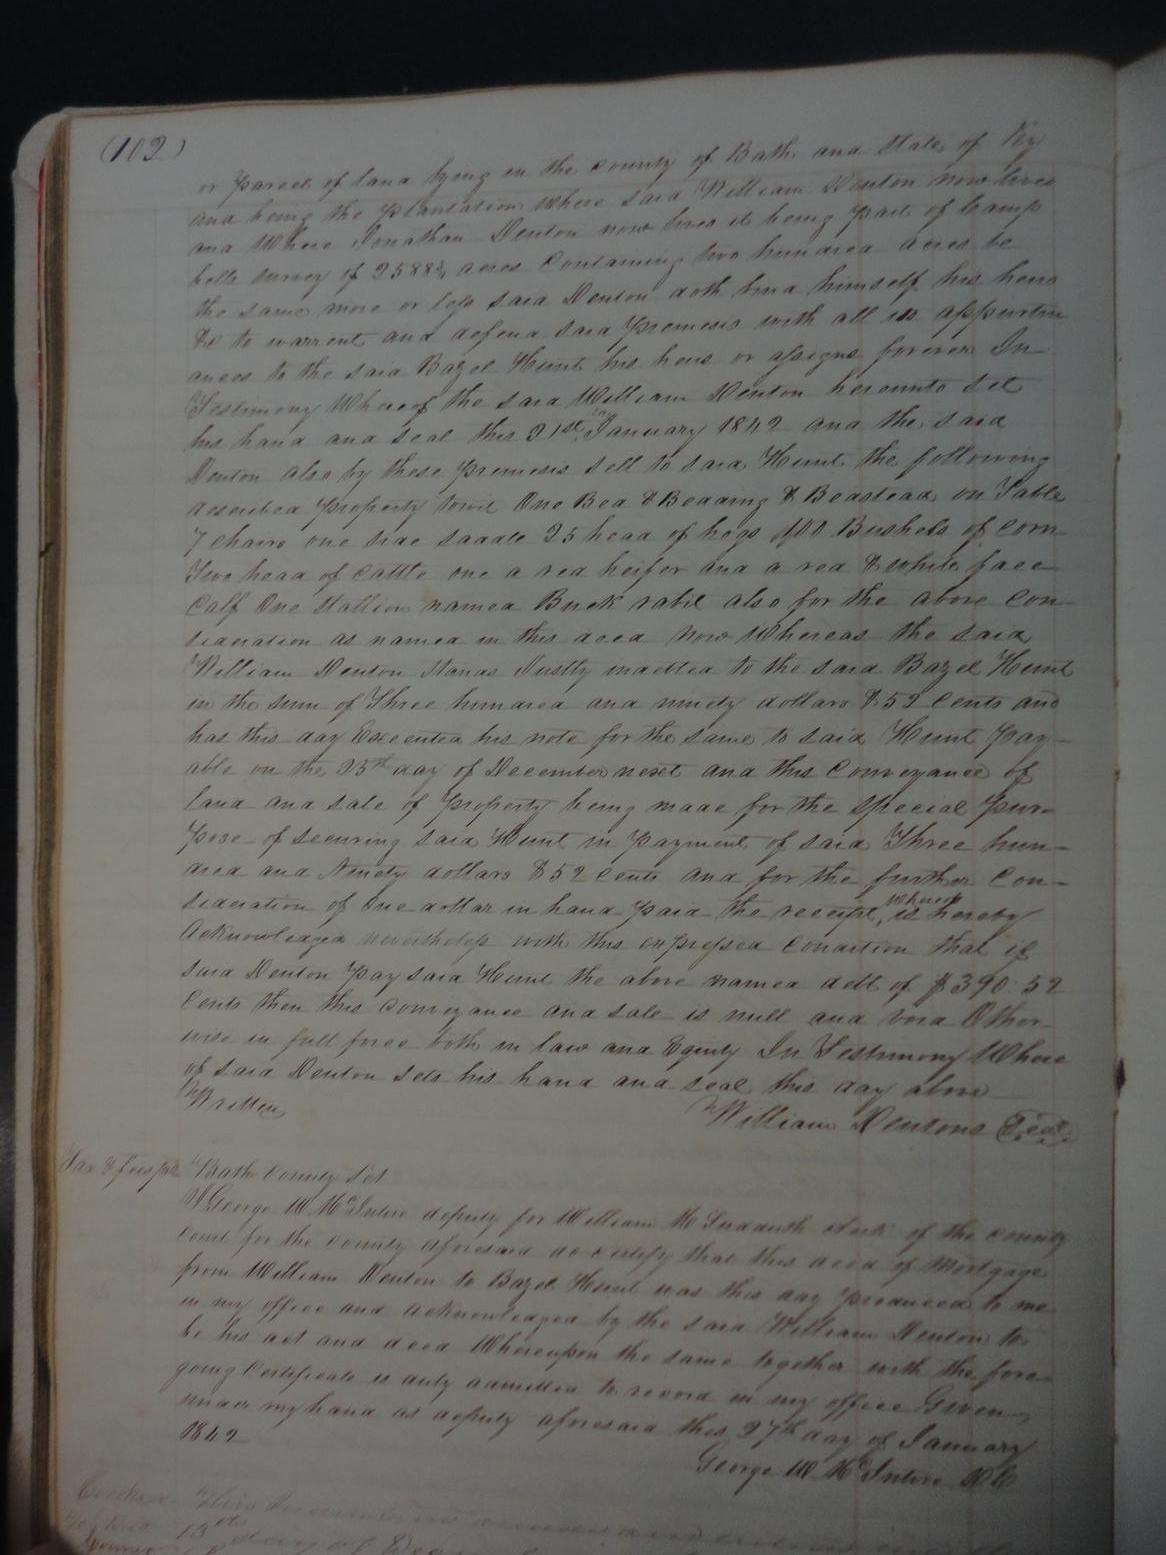 (102)
or parcel of land lying in the County of Bath and State of Ky
and being the plantation where said William Denton now lives
and Where Jonathan Denton now lives it being part of Camp
bells survey of acres Containing two hundred acres be
the same more or less said Denton doth bind himself his heirs
&c to warrent and defend said premesis with all its appurtin
ances to the said Bazel Hunt his heirs or assigns forever In
Testimony Whereof the said William Denton hereunto set
his hand and seal this 21st day January 1842 and the said
Denton also by these premesis sell to said Hunt the following
described property towit One Bed & Bedding & Beadstead on Table
7 chairs one side saddle 25 head of hogs 400 Bushels of corn
Two head of Cattle one a red heifer and a red & white face
Calf One Stallion named Buck rabit also for the above Con
sideration as named in this deed Now Whereas the said
William Denton Stands Justly indetted to the said Bazel Hunt
in the sum of Three hundred and ninety dollars & 52 Cents and
has this day Executed his note for the same to said Hunt Pay-
able on the 25th day of December next and this Conveyance of
land and sale of property being made for the special pur-
pose of securing said Hunt in payment of said Three hun-
dred and Ninety dollars & 52 Cents and for the further Con-
sideration of One dollar in hand paid the receipt whereof is hereby
Acknowledged nevertheless with this expressed Condition that if
said Denton pay said Hunt the above named debt of $390.52
Cents then this conveyance and sale is null and void Other
wise in full force both in law and Equity In Testimony Where
of said Denton sets his hand and seal this day above
Written
William Dentons Seal
Tax & fees pd
Bath County Sct
I George W McIntire deputy for William M Sudduth clerk of the county
court for the county aforesaid do certify that this deed of Mortgage
from William Denton to Bazel Hunt was this day produced to me
in my office and acknowledged by the said William Denton to
be his act and deed Whereupon the same together with the fore-
going Certificate is duly admitted to record in my office Given
under my hand as deputy aforesaid this 27th day of January
1842
George W McIntire DC
This Indenture
13th day of